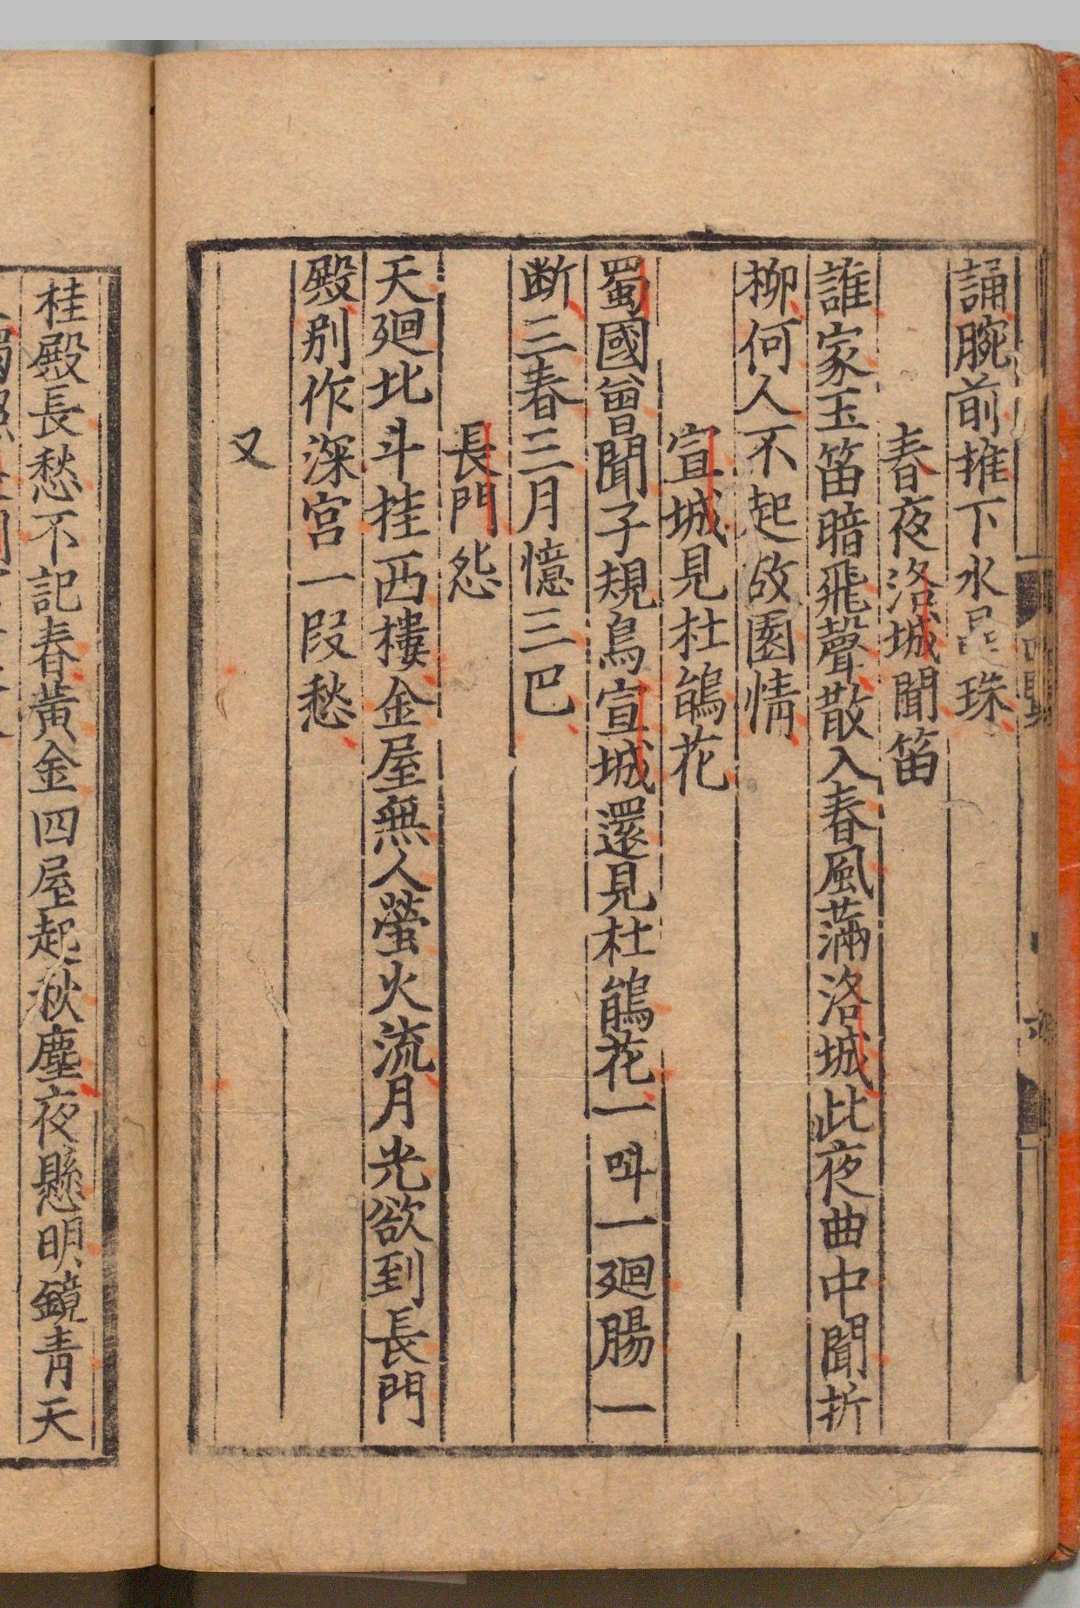 誦腕前推下水晶珠
春夜洛城聞笛
誰家玉笛暗飛聲散入春風滿洛城此夜曲中聞折
柳何人不起故園情
宣城見杜鵑花
蜀國曾聞子規鳥宣城還見杜鵑花一叫一廻腸一
断三春三月憶三巴
長門怨
天廻北斗挂西樓金屋無人螢火流月光欲到長門
殿别作深宫一段愁
又
桂殿長愁不記春黃金四屋起秋塵夜懸明鏡青天